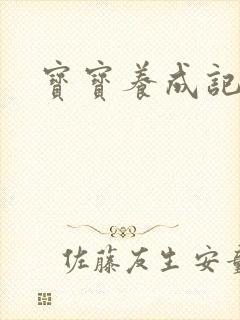 寶寶養成記
佐藤友生 安